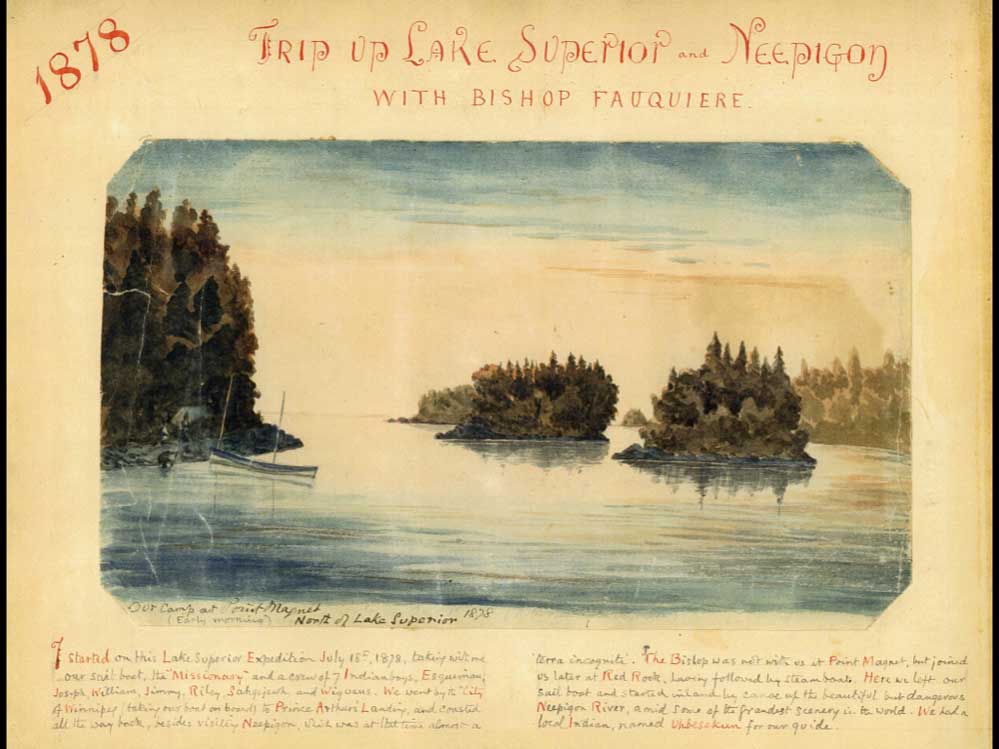 1878
Trip up Lake Superior and Neepigon
with Bishop Fauquiere.
Our Camp at Point Magnet
(Early morning) North of Lake Superior 1878
I started on this Lake Superior Expedition July 15th, 1878, taking with me
our sail boat, the "Missionary" and a crew of 7 Indian boys, Esquimau,
Joseph, William, Jimmy, Riley, Sahgejewh, and Wigwaus. We went by the "City
of Winnipeg" (taking our boat on board) to Prince Arthurs Landing, and coasted
all the way back, besides visiting Neepigon, which was at that time almost a
'terra incognita'. The Bishop was not with us at Point Magnet, but joined
us later at Red Rock, having followed by steamboats. Here we left our
sail boat and started inland by canoe up the beautiful but dangerous
Neepigon River, amid some of the grandest scenery in the world. We had a
local Indian, named Uhbesekun for our guide.